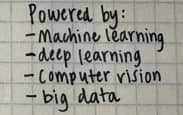 Powered by:
- Machine learning
- deep learning
- Computer vision
- big data